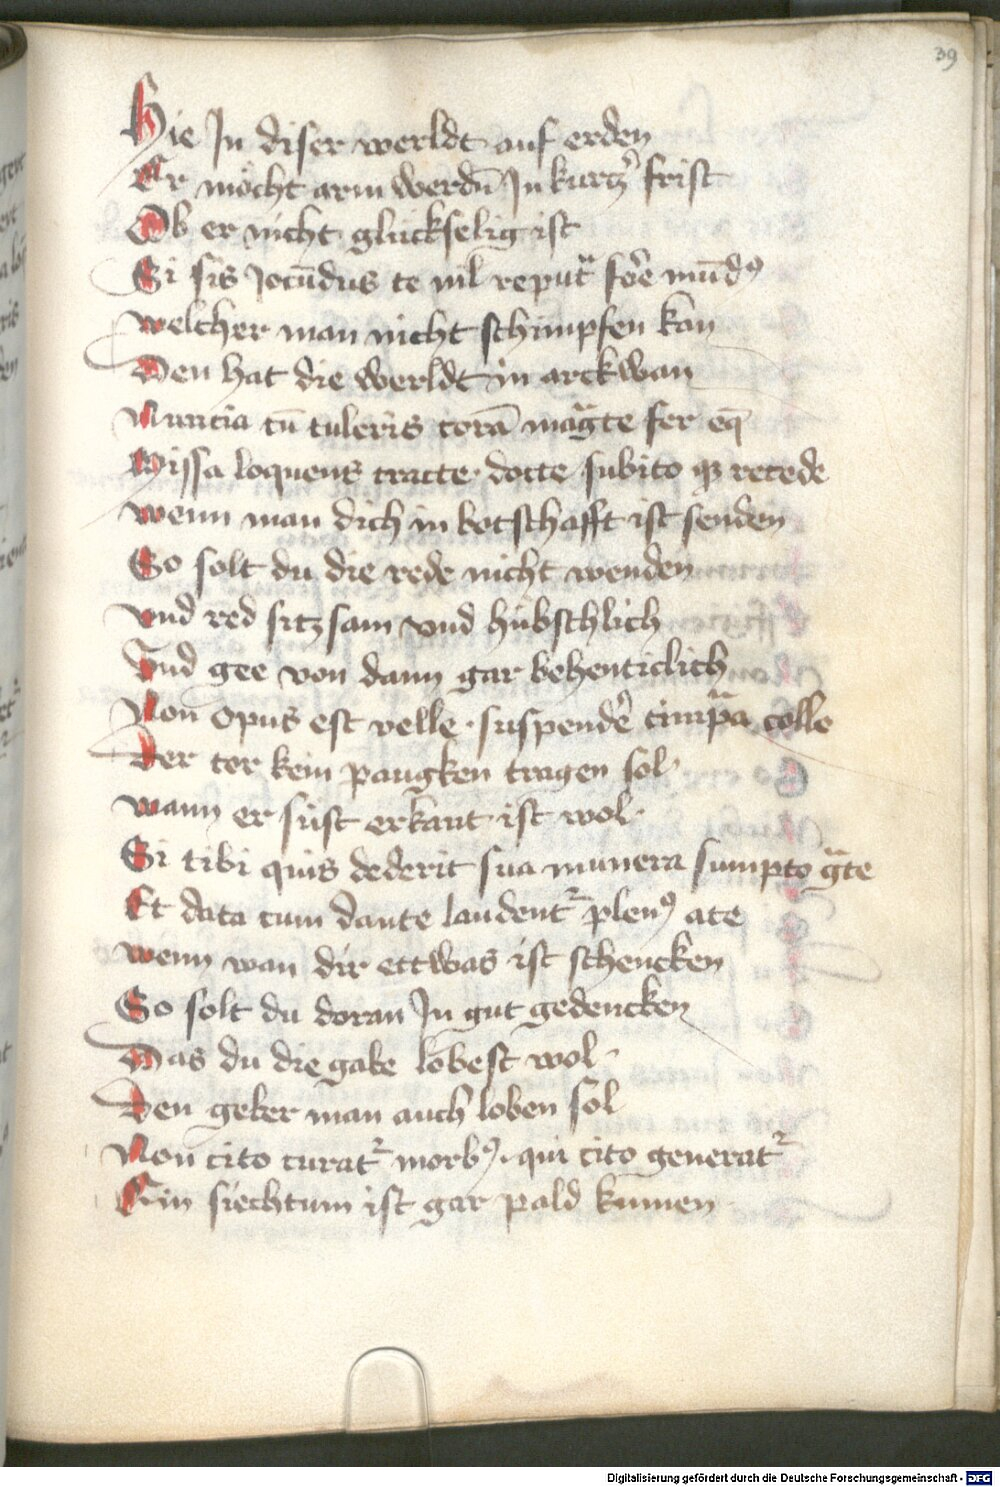 39
Hie In diser werldt auf erden
Er möcht arm werdn̄ In kurtzer frist
Ob er nicht glückselig ist
Si sis Jocūdus te nil reput̄ fore mūdꝯ
welcher man nicht schimpfen kan
Den hat die werldt in arckwan
Nuncia cū tuleris corā mag̃te fer eq̄
Missa loquens tracte docte subito qꝫ recede
wenn man dich in botschafft ist senden
So solt du die rede nicht wenden
vnd red sitzsam vnd hübschlich
Vnd gee von dann gar behenticlich
Non opus est velle · suspendẽ timpãa colle
Der tor kein paugken tragen sol
wann er süst erkant ist wol
Si tibi quis dederit sua munera sumpto g̃te
Et data cum dante laudent᷑ plenꝯ a te
wenn man dir ettwas ist schencken
So solt du doran In gut gedencken
Das du die gabe lobest wol
Den geber man auch loben sol
Non cito curat᷑ morbꝯ · qui cito generat᷑
Ein siechtum ist gar pald kumen
Digitalisierung gefördert durch die Deutsche Forschungsgemeinschaft - DFG